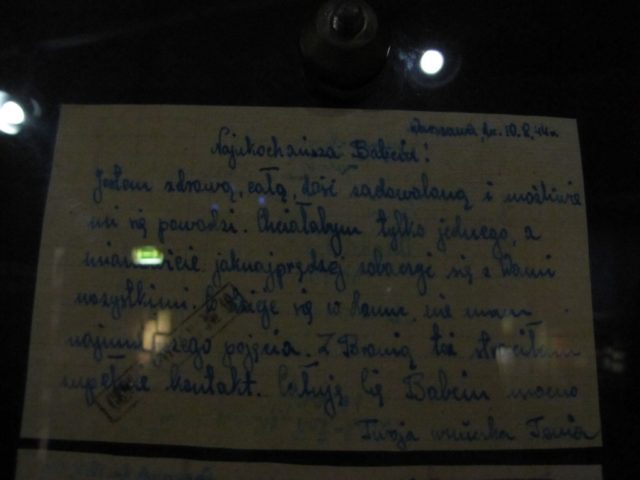 Warszawa, dn. 10.8.44r.
Najukochańsza Babciu!
Jestem zdrową, całą, dość zadowoloną i możliwie
mi się powodzi. Chciałabym tylko jednego, a
mianowicie jaknajprędzej zobaczyć się z Wami
wszystkimi. Co się dzieje w domu, nie mam
najmniejszego pojęcia. Z Bronią też straciłam
zupełnie kontakt. Całuję Cię Babciu mocno
Twoja wnuczka Tenia